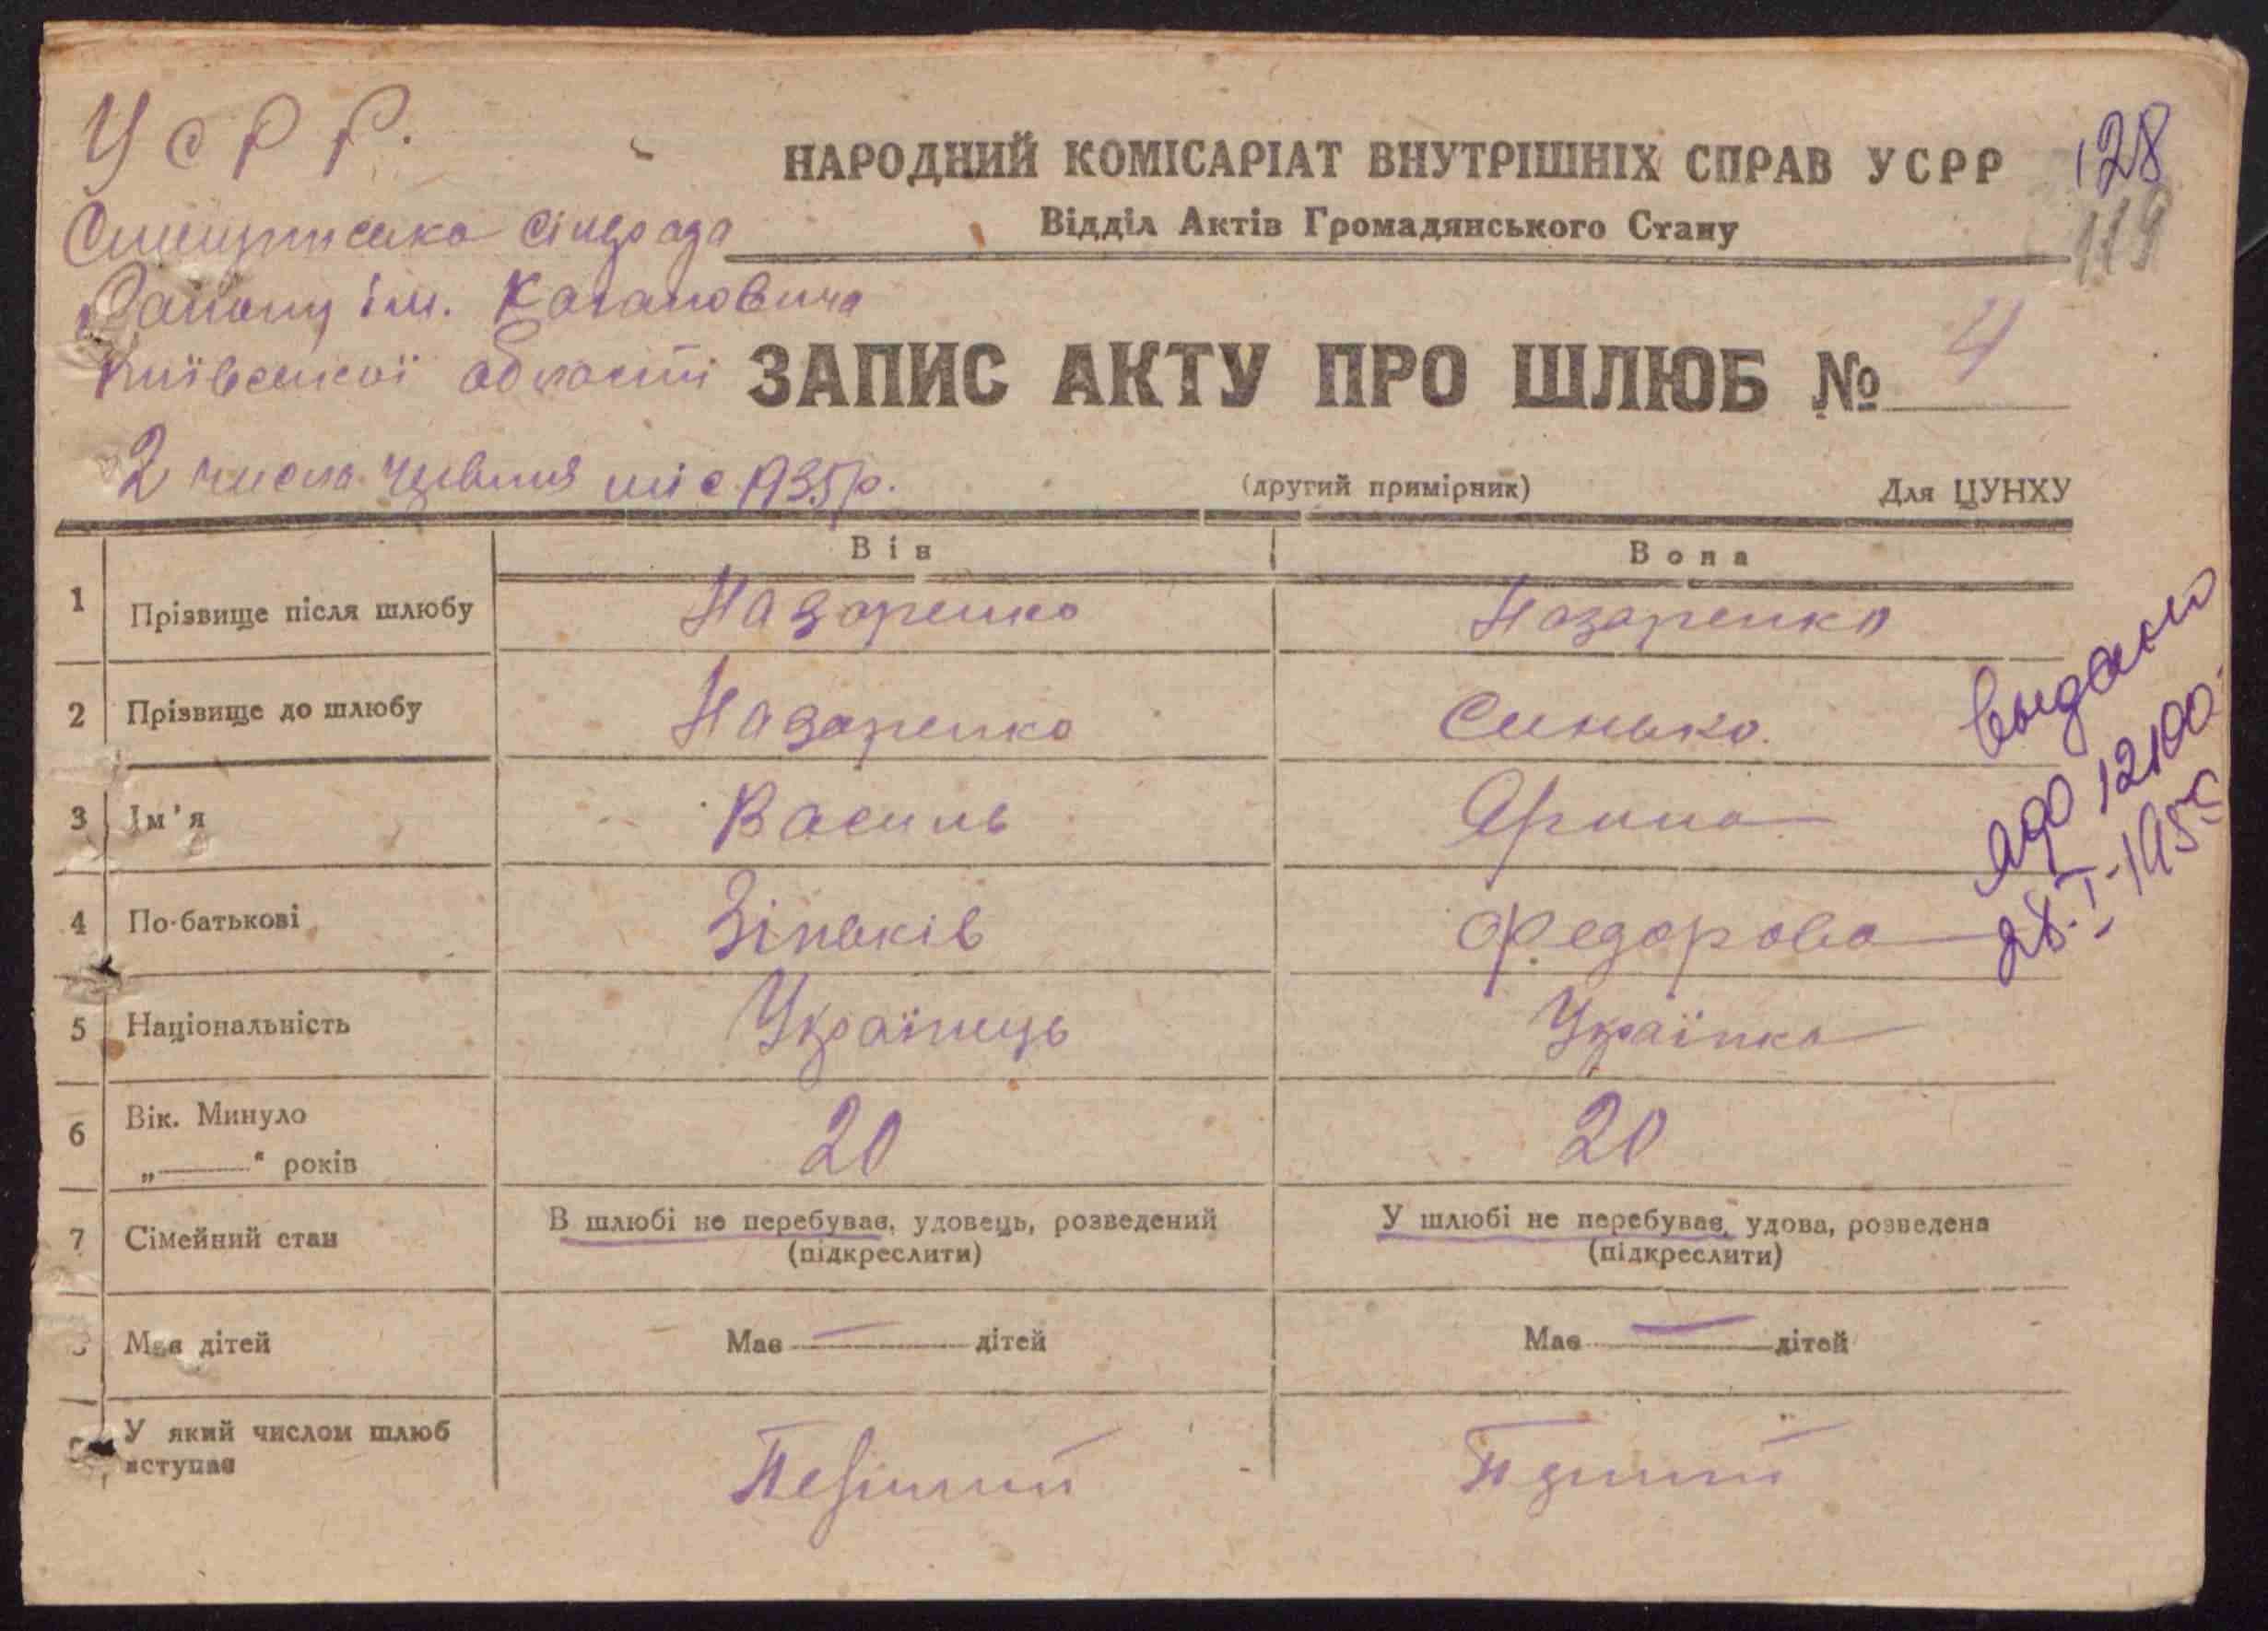 УСРР.
НАРОДНИЙ КОМІСАРІАТ ВНУТРІШНІХ СПРАВ УСРР
128
119
Відділ Актів Громадянського Стану
сільрада
Району ім. Кагановича
Київської області
ЗАПИС АКТУ ПРО ШЛЮБ № 4
2 числа червня міс 1935 р.
(другий примірник)
Для ЦУНХУ
Він
Вона
1 Прізвище після шлюбу Назаренко Назаренко
2 Прізвище до шлюбу Назаренко Синько.
3 Ім'я Василь Ярина
4 По-батькові Зіньків Федорова
5 Національність Українець Українка
6 Вік. Минуло „——“ років 20 20
7 Сімейний стан В шлюбі не перебував, удовець, розведений (підкреслити) У шлюбі не перебував, удова, розведена (підкреслити)
Має дітей Має — дітей Має — дітей
У який числом шлюб вступає Перший
выдано
12100
28.I-195